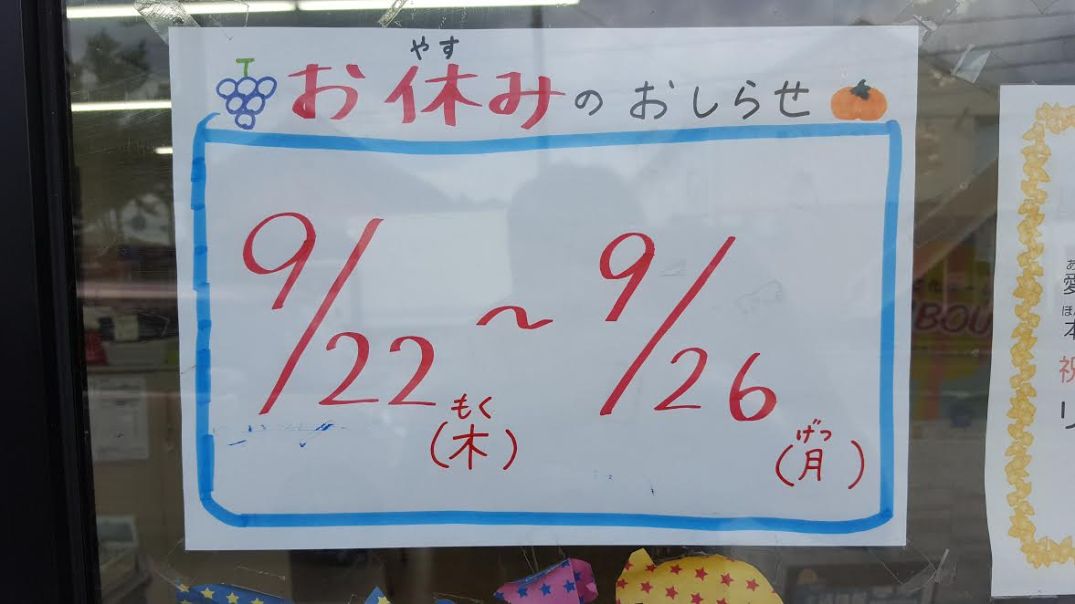 やす
お休みのおしらせ
9/22～9/26
もく
(木)
げつ
(月)
BOU
あ
愛
ほん
本
祝
リ